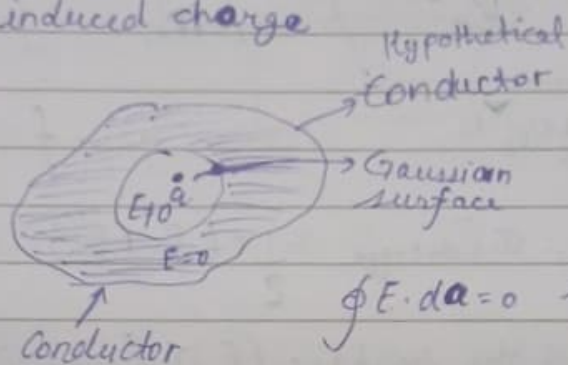 induced charge
Hypothetical
Conductor
Gaussian
surface
q
E≠0
E=0
∮E.da=0
Conductor